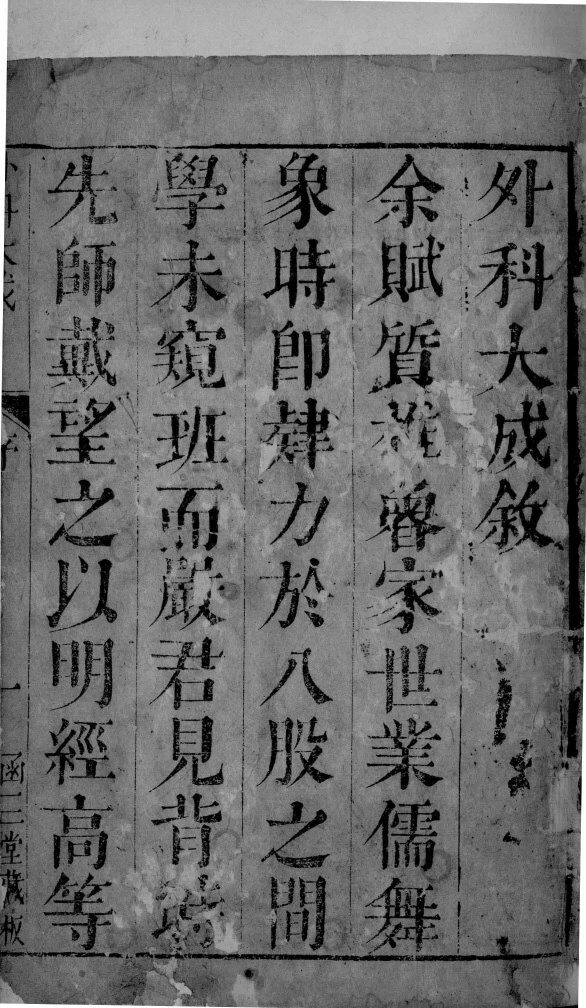 外科大成敘
余賦質椎魯家世業儒舞
象時卽肄力於八股之間
學未窺班而嚴君見背時
先師戴望之以明經高等
外科大成 序 一 函三堂藏板